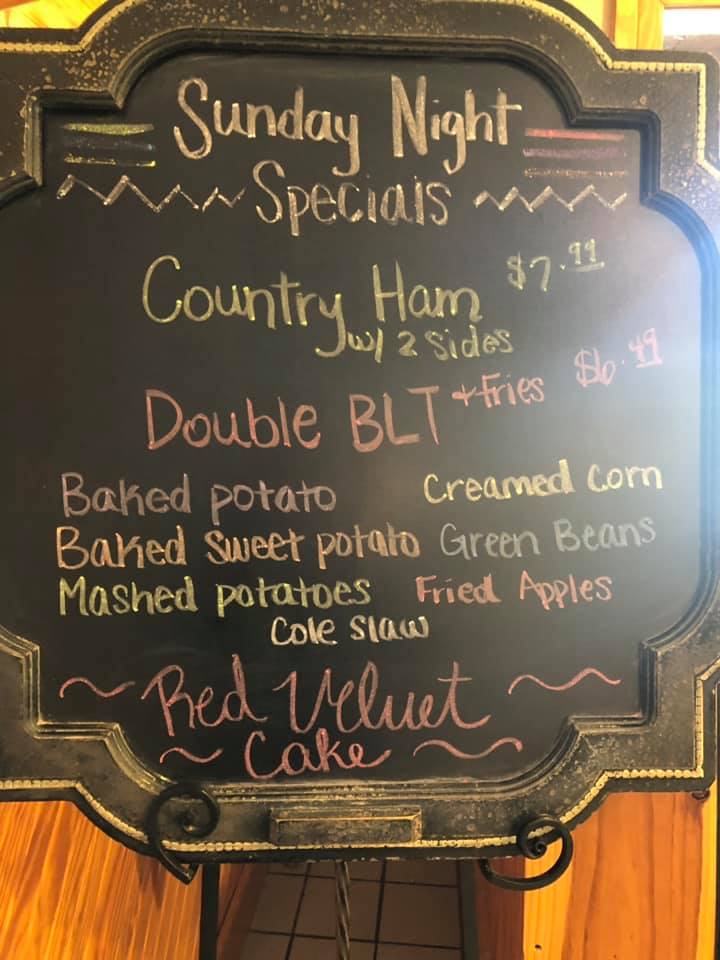 Sunday Night
Specials
Country Ham $7.99
w/ 2 Sides
Double BLT + Fries $6.49
Baked potato Creamed Corn
Baked Sweet potato Green Beans
Mashed potatoes Fried Apples
Cole Slaw
Red Velvet
Cake